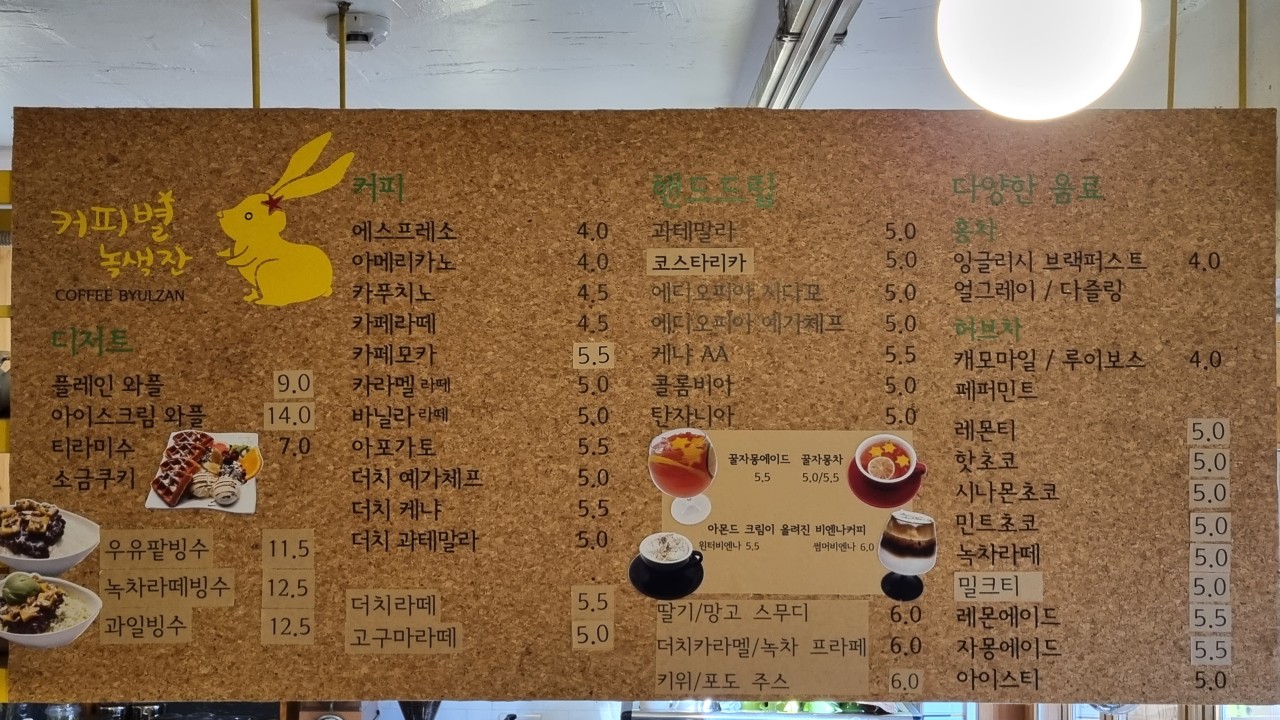 커피별
녹색잔
COFFEE BYULZAN
디저트
플레인 와플 9.0
아이스크림 와플 14.0
티라미수 7.0
소금쿠키
우유팥빙수 11.5
녹차라떼빙수 12.5
과일빙수 12.5
커피
에스프레소 4.0
아메리카노 4.0
카푸치노 4.5
카페라떼 4.5
카페모카 5.5
카라멜 라떼 5.0
바닐라 라떼 5.0
아포가토 5.5
더치 예가체프 5.0
더치 케냐 5.5
더치 과테말라 5.0
더치라떼 5.5
고구마라떼 5.0
핸드드립
과테말라 5.0
코스타리카 5.0
에디오피아 시다모 5.0
에디오피아 예가체프 5.0
케냐 AA 5.5
콜롬비아 5.0
탄자니아 5.0
꿀자몽에이드 꿀자몽차
5.5 5.0/5.5
아몬드 크림이 올려진 비엔나커피
윈터비엔나 5.5 썸머비엔나 6.0
딸기/망고 스무디 6.0
더치카라멜/녹차 프라페 6.0
키위/포도 주스 6.0
다양한 음료
홍차
잉글리시 브랙퍼스트 4.0
얼그레이 / 다즐링
허브차
캐모마일 / 루이보스 4.0
페퍼민트
레몬티 5.0
핫초코 5.0
시나몬초코 5.0
민트초코 5.0
녹차라떼 5.0
밀크티 5.0
레몬에이드 5.5
자몽에이드 5.5
아이스티 5.0